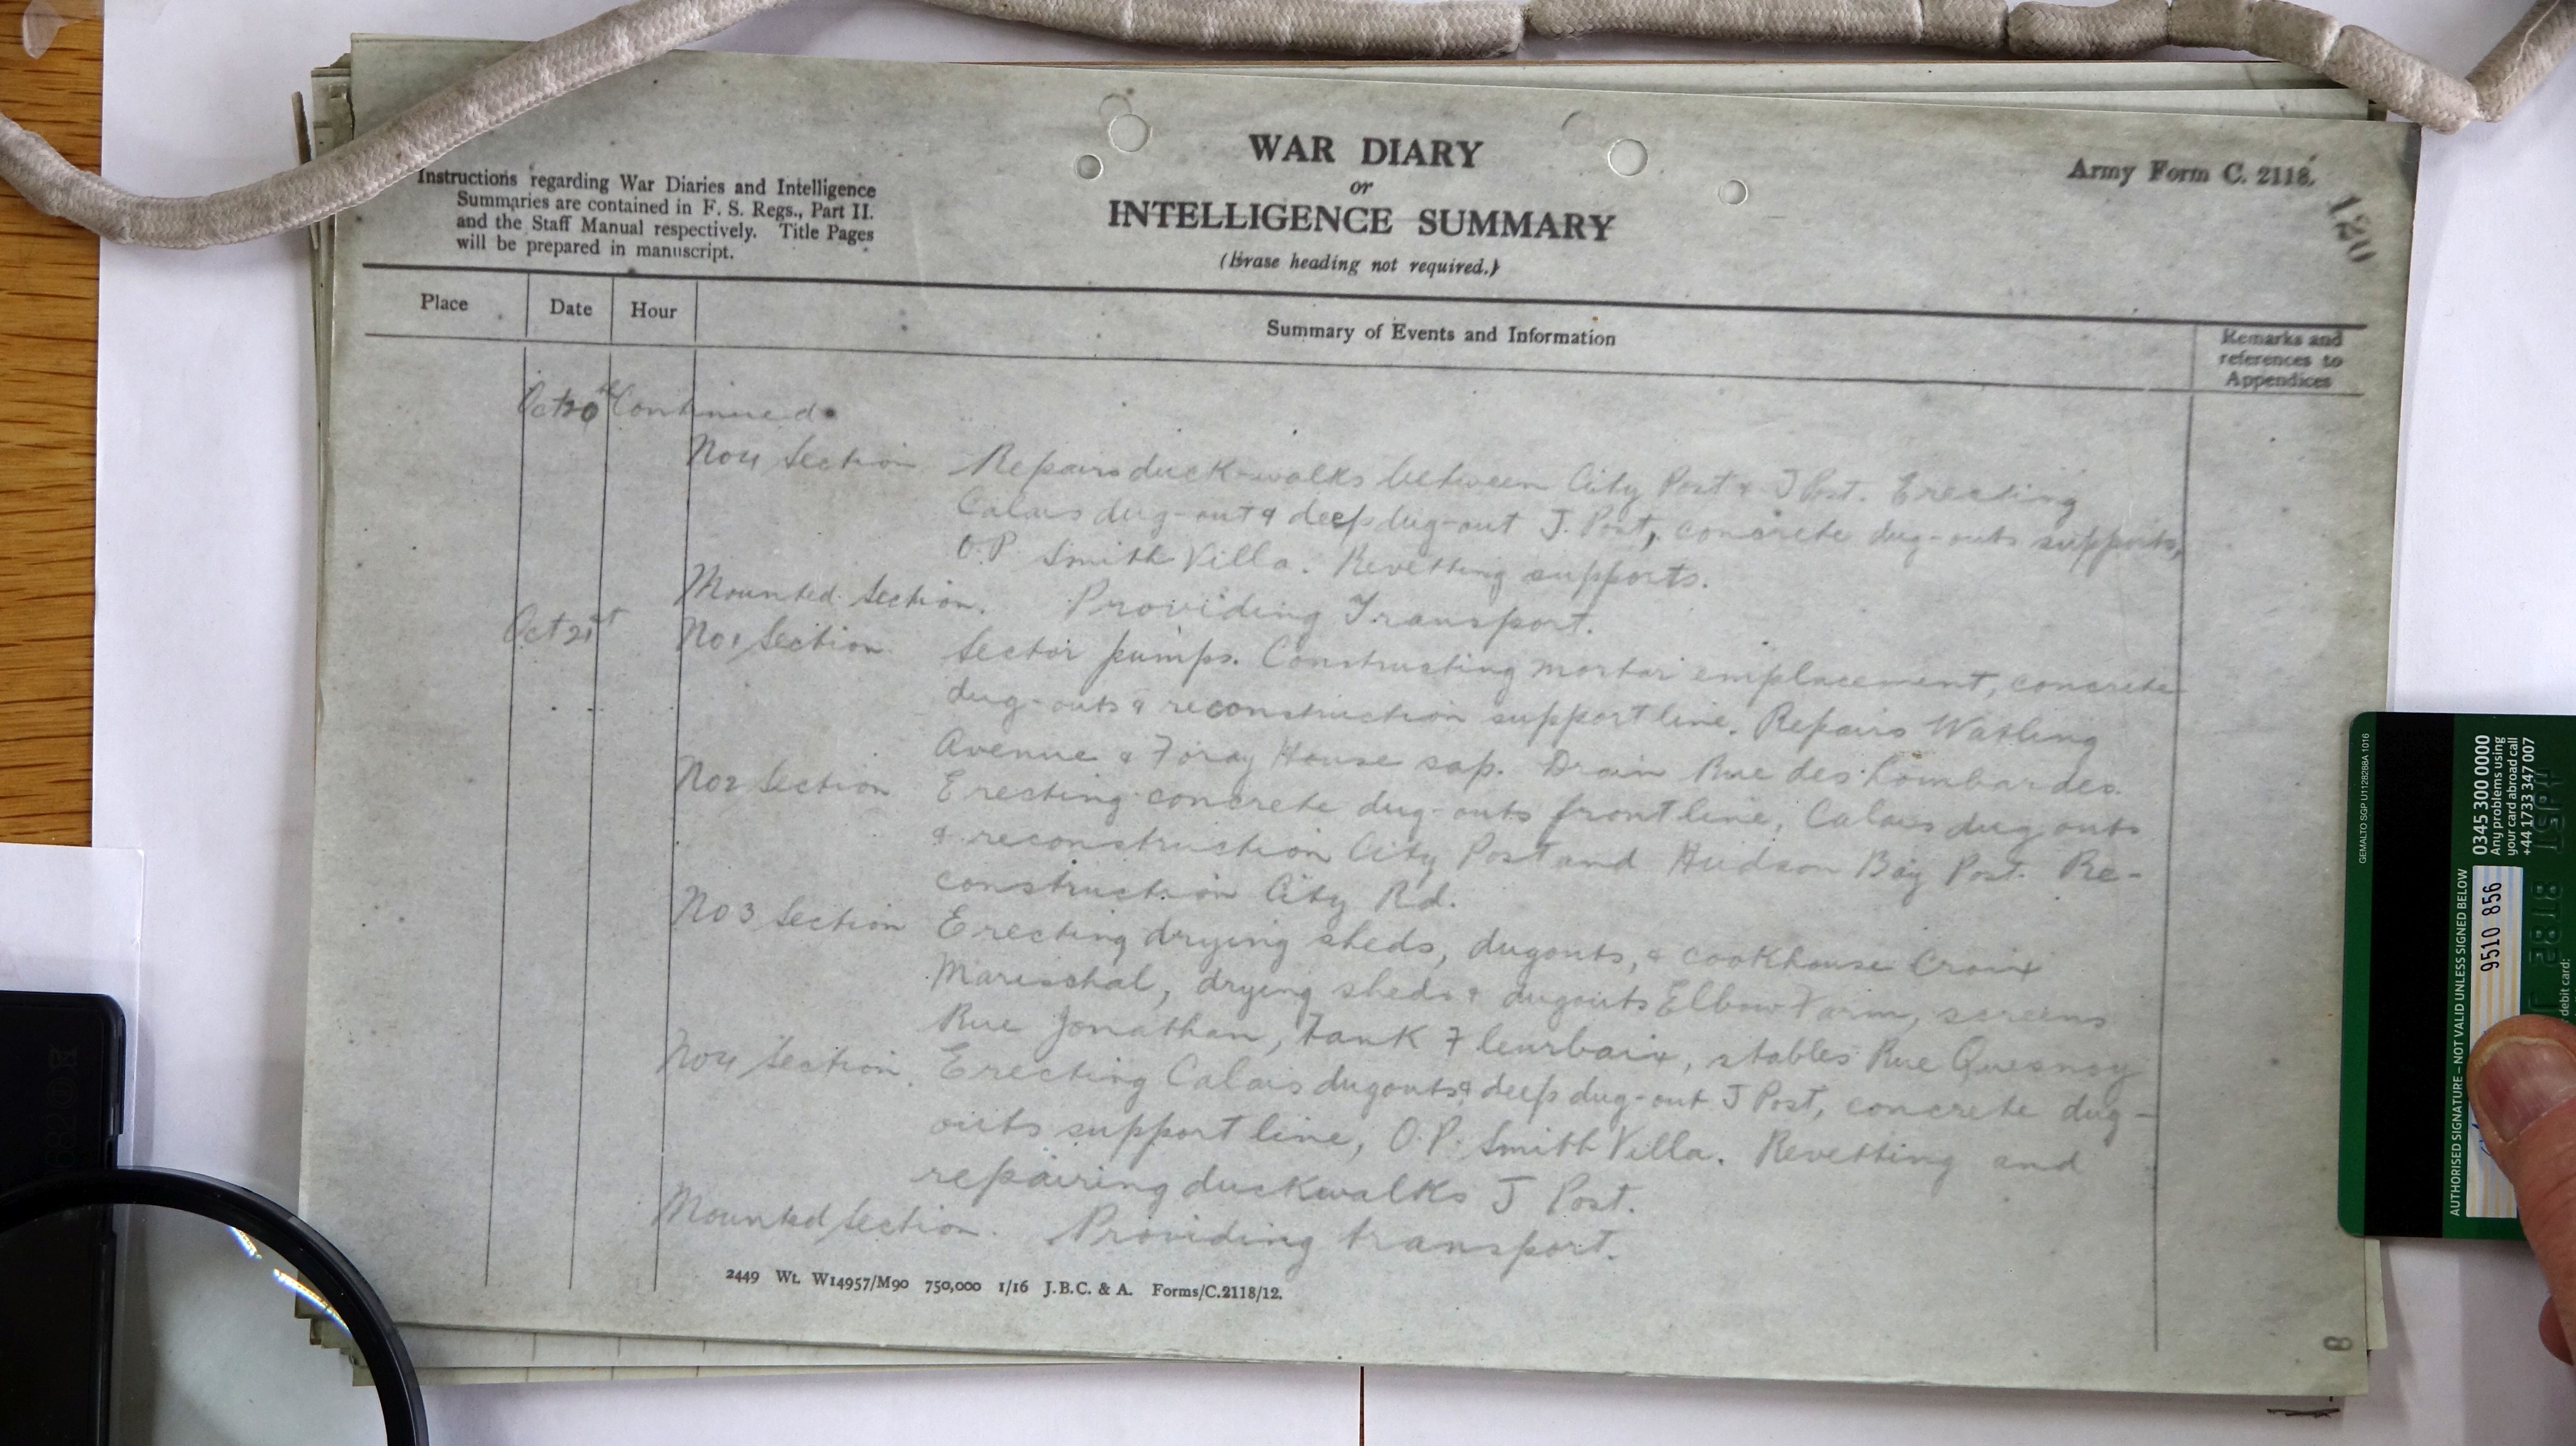 WAR DIARY
or
INTELLIGENCE SUMMARY
(Erase heading not required.)
Army Form C. 2118.
120
Instructions regarding War Diaries and Intelligence
Summaries are contained in F. S. Regs., Part II.
and the Staff Manual respectively. Title Pages
will be prepared in manuscript.
Place Date Hour Summary of Events and Information Remarks and references to Appendices
Oct 20th Continued.
No 4 Section Repairs duck-walks between City Post & J Post. Erecting
Calais dug-out & deep dug-out J. Post, concrete dug-outs supports,
O.P Smith Villa. Revetting supports.
Mounted Section. Providing Transport.
Oct 21st No 1 Section Sector pumps. Constructing mortar emplacement, concrete
dug-outs & reconstruction support line. Repairs Watling
Avenue & Foray House sap. Drain Rue des Lombardes.
No 2 Section Erecting concrete dug-outs front line, Calais dug outs
& reconstruction City Post and Hudson Bay Post. Re-
construction City Rd.
No 3 Section Erecting drying sheds, dugouts, & cookhouse Croix
Marischal, drying sheds & dugouts Elbow Farm, screens
Rue Jonathan, tank Fleurbaix, stables Rue Quesnoy
No 4 Section. Erecting Calais dugouts & deep dug-out J Post, concrete dug-
outs support line, O.P. Smith Villa. Revetting and
repairing duckwalks J Post.
Mounted Section. Providing transport.
2449 Wt. W14957/M90 750,000 1/16 J.B.C. & A. Forms/C.2118/12.
8
GEMALTO SGP U1128288A 1016
0345 300 0000
Any problems using
your card abroad call
+44 1733 347 007
AUTHORISED SIGNATURE – NOT VALID UNLESS SIGNED BELOW
9510 856
debit card: